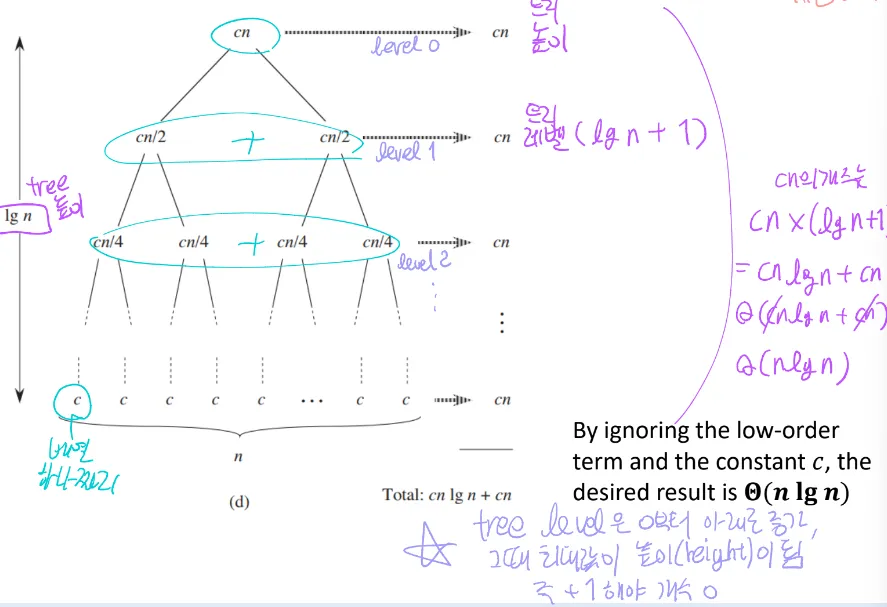 cn
level 0
cn
트리
높이
cn/2 + cn/2
level 1
cn
트리
레벨 (lg n + 1)
tree
높이
lg n
cn/4 cn/4 + cn/4 cn/4
level 2
cn
cn의 개수는
cn × (lg n+1)
= cn lg n + cn
Θ(cn lg n + cn)
Θ(n lg n)
c c c c c ... c c
cn
n
(d)
Total: cn lg n + cn
By ignoring the low-order
term and the constant c, the
desired result is Θ(n lg n)
tree level은 0부터 아래로 증가,
그때 최대값이 높이(height)이 됨
즉 +1 해야 개수